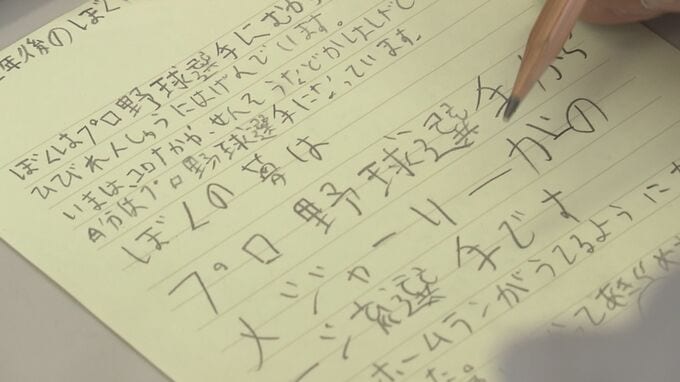 年後のぼく
ぼくはプロ野球選手にむかっ
ひびれんしゅうにはげんでいます。
いまは、コロナかか、せんそうなどが
自分はプロ野球選手になっています。
ぼくの夢は
プロ野球選手から
メジャーリーからの
選手です
ホームランがうてるように